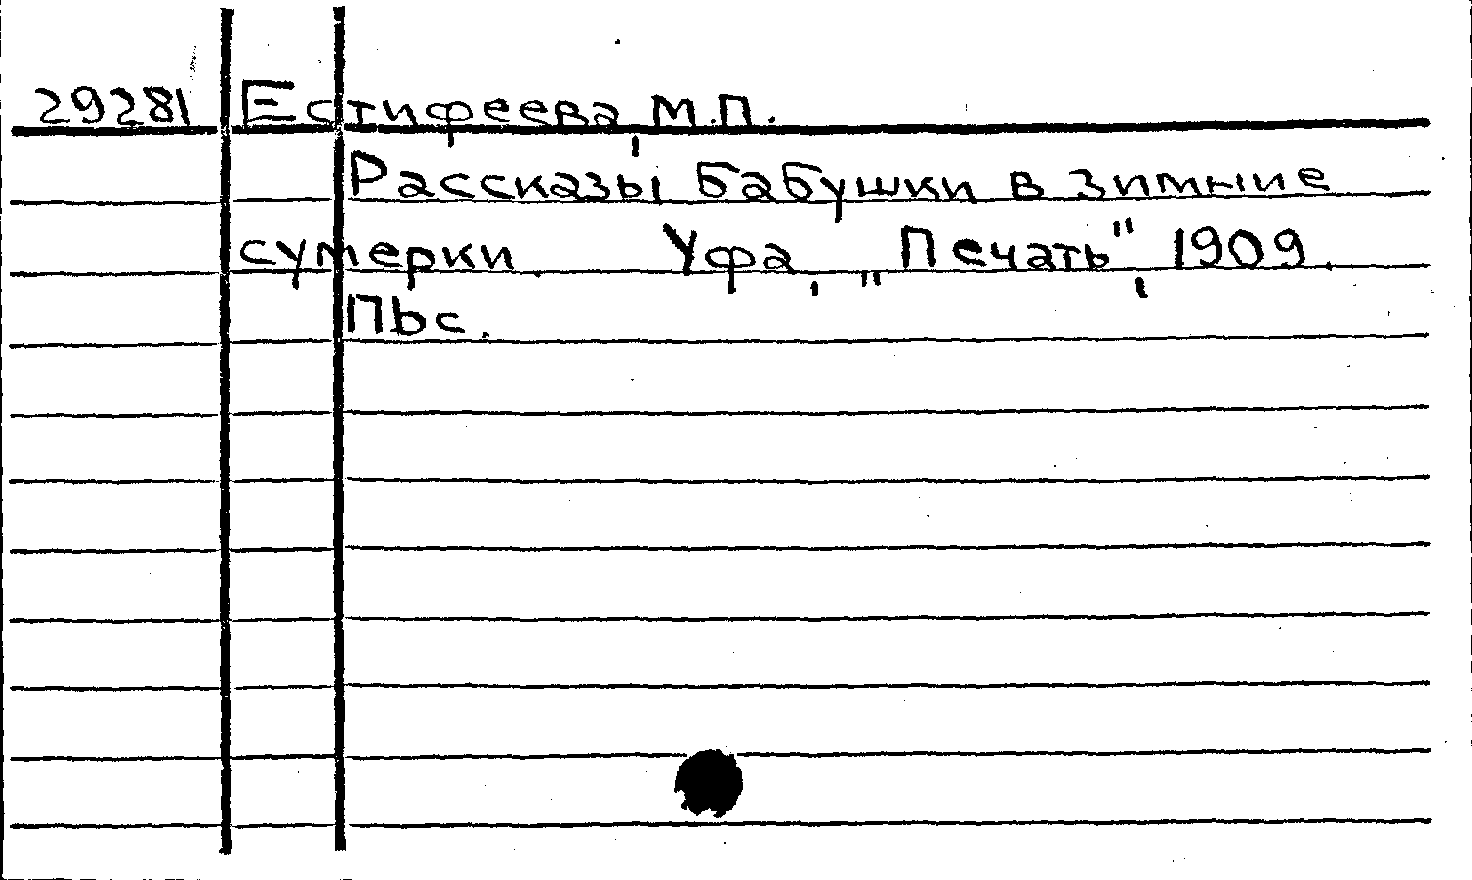 29281 Естифеева, М.П.
Рассказы бабушки в зимние
сумерки. Уфа, „Печать", 1909.